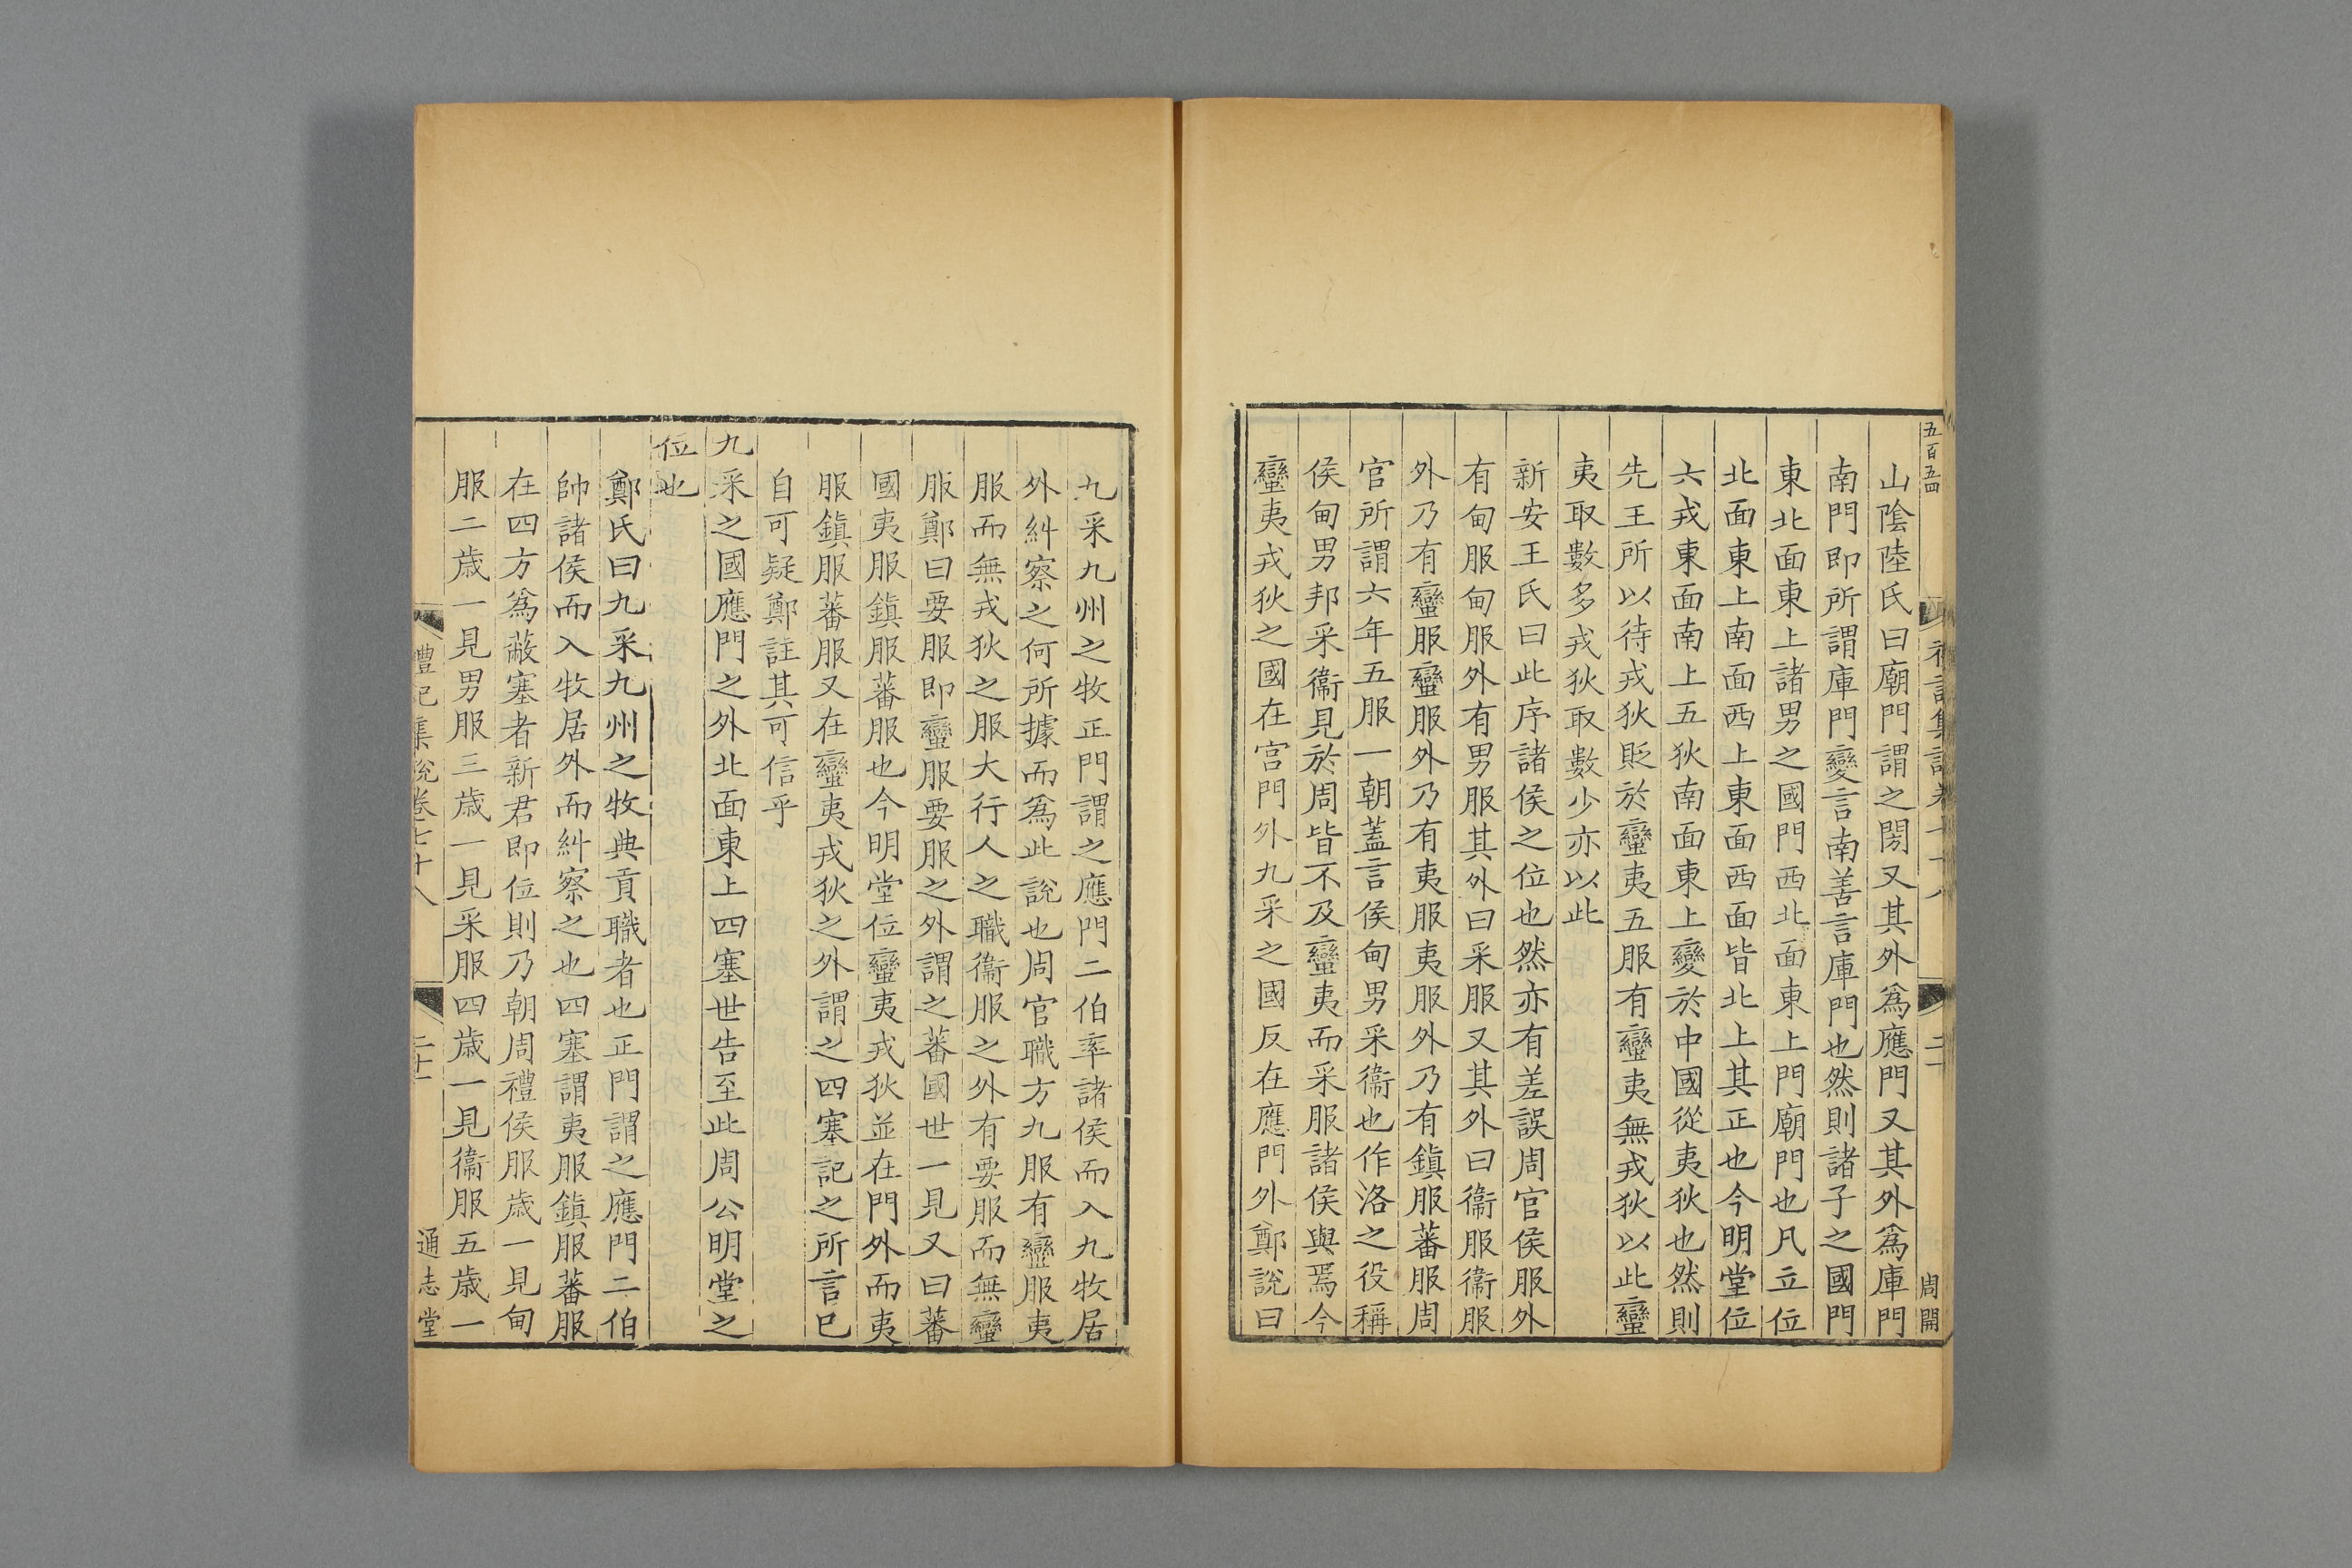 五百五四
山陰陸氏曰廟門謂之閍又其外爲應門又其外爲庫門
南門即所謂庫門變言南善言庫門也然則諸子之國門
東北面東上諸男之國門西北面東上門廟門也凡立位
北面東上南面西上東面西面皆北上其正也今明堂位
六戎東面南上五狄南面東上變於中國從夷狄也然則
先王所以待戎狄貶於蠻夷五服有蠻夷無戎狄以此蠻
夷取數多戎狄取數少亦以此
新安王氏曰此序諸侯之位也然亦有差誤周官侯服外
有甸服甸服外有男服其外曰采服又其外曰衞服衞服
外乃有蠻服蠻服外乃有夷服夷服外乃有鎮服蕃服周
官所謂六年五服一朝蓋言侯甸男采衞也作洛之役稱
侯甸男邦采衞見於周皆不及蠻夷而采服諸侯與焉今
蠻夷戎狄之國在宮門外九采之國反在應門外鄭說曰
九采九州之牧正門謂之應門二伯率諸侯而入九牧居
外糾察之何所據而爲此說也周官職方九服有蠻服夷
服而無戎狄之服大行人之職衞服之外有要服而無蠻
服鄭曰要服即蠻服要服之外謂之蕃國世一見又曰蕃
國夷服鎮服蕃服也今明堂位蠻夷戎狄並在門外而夷
服鎮服蕃服又在蠻夷戎狄之外謂之四塞記之所言已
自可疑鄭註其可信乎
九采之國應門之外北面東上四塞世告至此周公明堂之
位也
鄭氏曰九采九州之牧典貢職者也正門謂之應門二伯
帥諸侯而入牧居外而糾察之也四塞謂夷服鎮服蕃服
在四方爲蔽塞者新君即位則乃朝周禮侯服歲一見甸
服二歲一見男服三歲一見采服四歲一見衞服五歲一
禮記集說卷七十八
二十一
通志堂